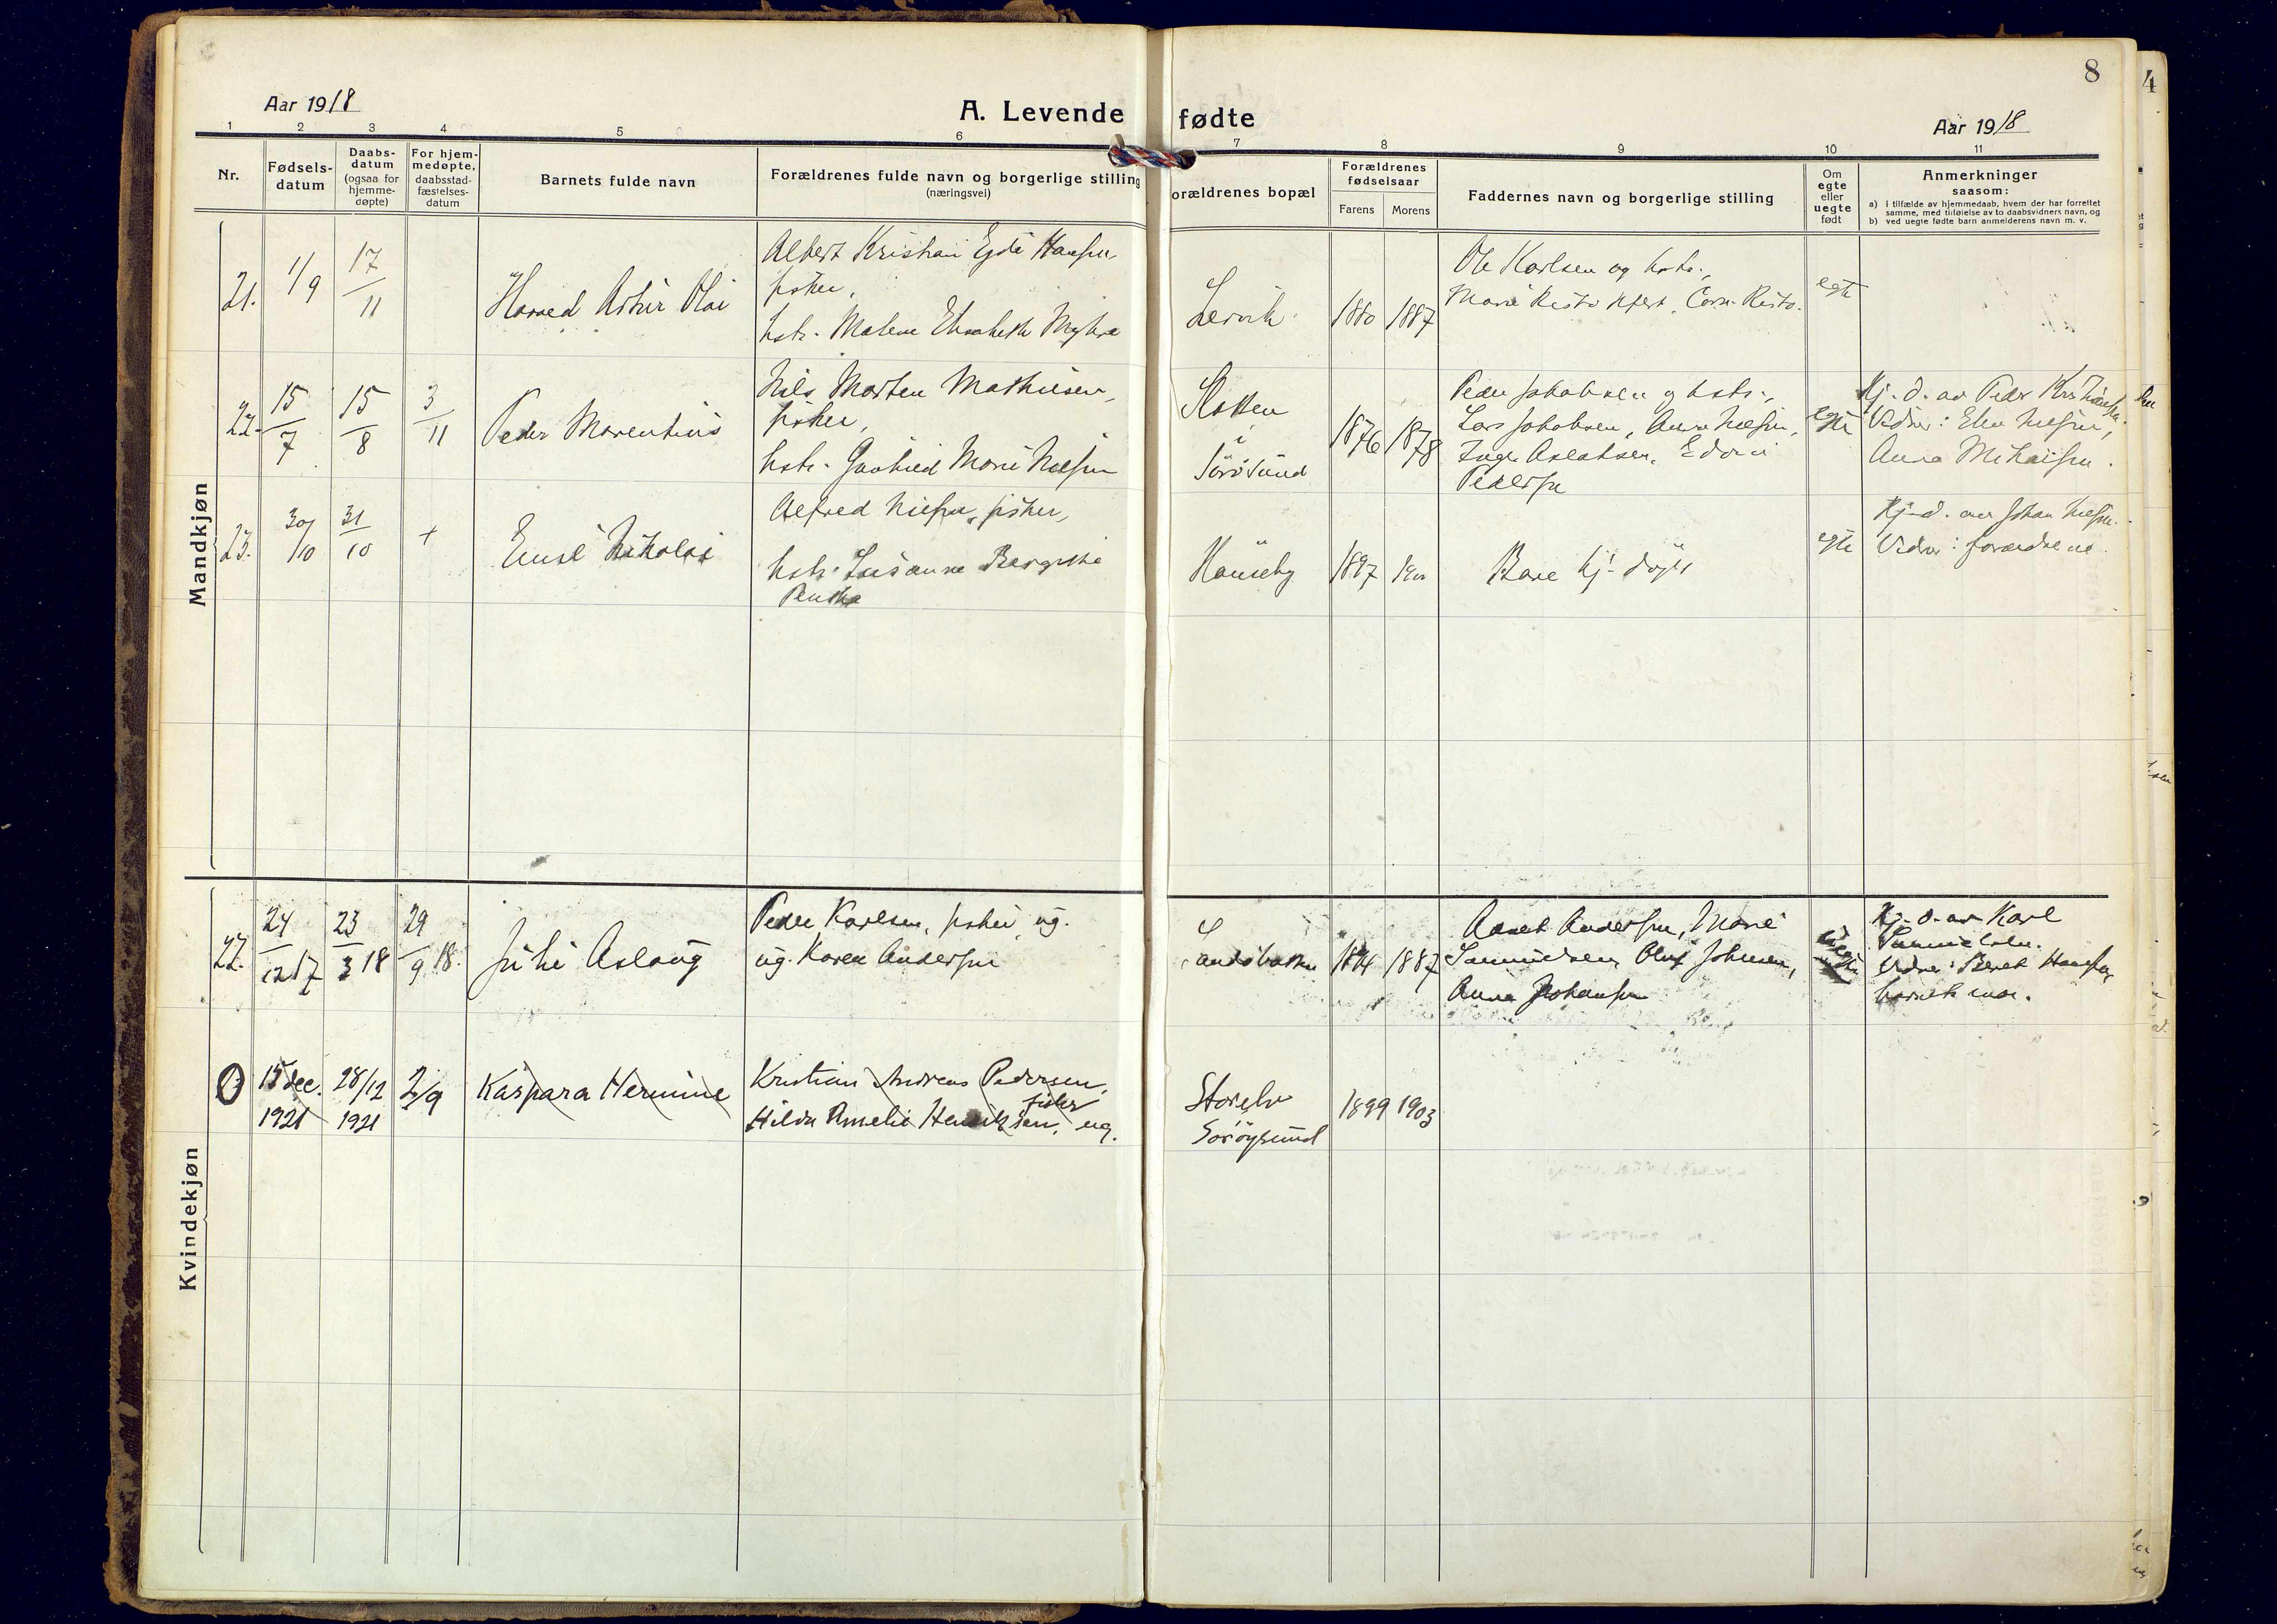 8
4
Aar 1918
A. Levende fødte
Aar 1918
1 2 3 4 5 6 7 8 9 10 11
Nr.
Fødsels-
datum
Daabs-
datum
(ogsaa for
hjemme-
døpte)
For hjem-
medøpte,
daabsstad-
fæstelses-
datum
Barnets fulde navn
Forældrenes fulde navn og borgerlige stilling
(næringsvei)
orældrenes bopæl
Forældrenes
fødselsaar
Farens Morens
Faddernes navn og borgerlige stilling
Om
egte
eller
uegte
født
Anmerkninger
saasom:
a) i tilfælde av hjemmedaab, hvem der har forrettet
samme, med tilføielse av to daabsvidners navn, og
b) ved uegte fødte barn anmelderens navn m. v.
Mandkjøn
21.
1/9
17/11
Artur Olai
Albert Kristian Hansen,
fisker,
hstr. Malene Elisabeth
1880 1887
Ole Karlsen og hstr.,
egte
22.
15/7
15/8
3/11
Peder Morentius
Nils Morten Mathisen,
fisker,
hstr. Marie Nilsen
i
Sørøsund
1876 1878
Peder Jakobsen og hstr.,
Lars Jakobsen, Anna Nilsen,
Inger Aslaksen,
Pedersen
egte
Hj. d. av Peder Kristiansen.
Vidner: Nilsen,
Anna
23.
30/10
31/10
+
Nikolai
Alfred Nilsen, fisker,
hstr. Susanna
1897
Bare hj. døpt
egte
Hj. d. av Johan Nilsen.
Vidner: forældrene.
Kvindekjøn
22.
24/12 17
23/3 18
29/9 18.
Julie Aslaug
Peder Karlsen, fisker, ug.
ug. Karen Andersen
1894 1887
Andersen, Marie
Samuelsen, Olaf Johnsen,
Anna Johansen
uegte
Hj. d. av Karl
Samuelsen.
Vidner: Beret Hansen,
barnets mor.
15 dec.
1921
28/12
1921
2/9
Kaspara Hermine
Kristian Andreas Pedersen,
fisker
Hilda Amelie Henriksen, ug.
Storelv
Sørøysund
1899 1903